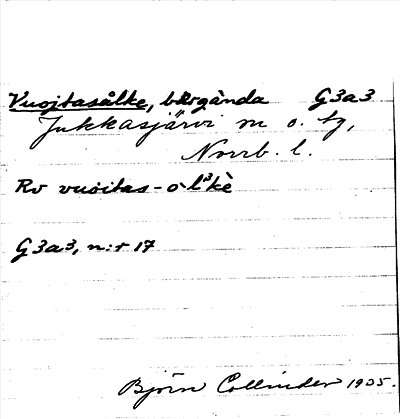 Vuojtasålke, bärgända G3a3
Jukkasjärvi sn o. tg,
Norrb. l.
Rv vuoitas-o`l'kè
G3a3, n:r 17
Björn Collinder 1935.